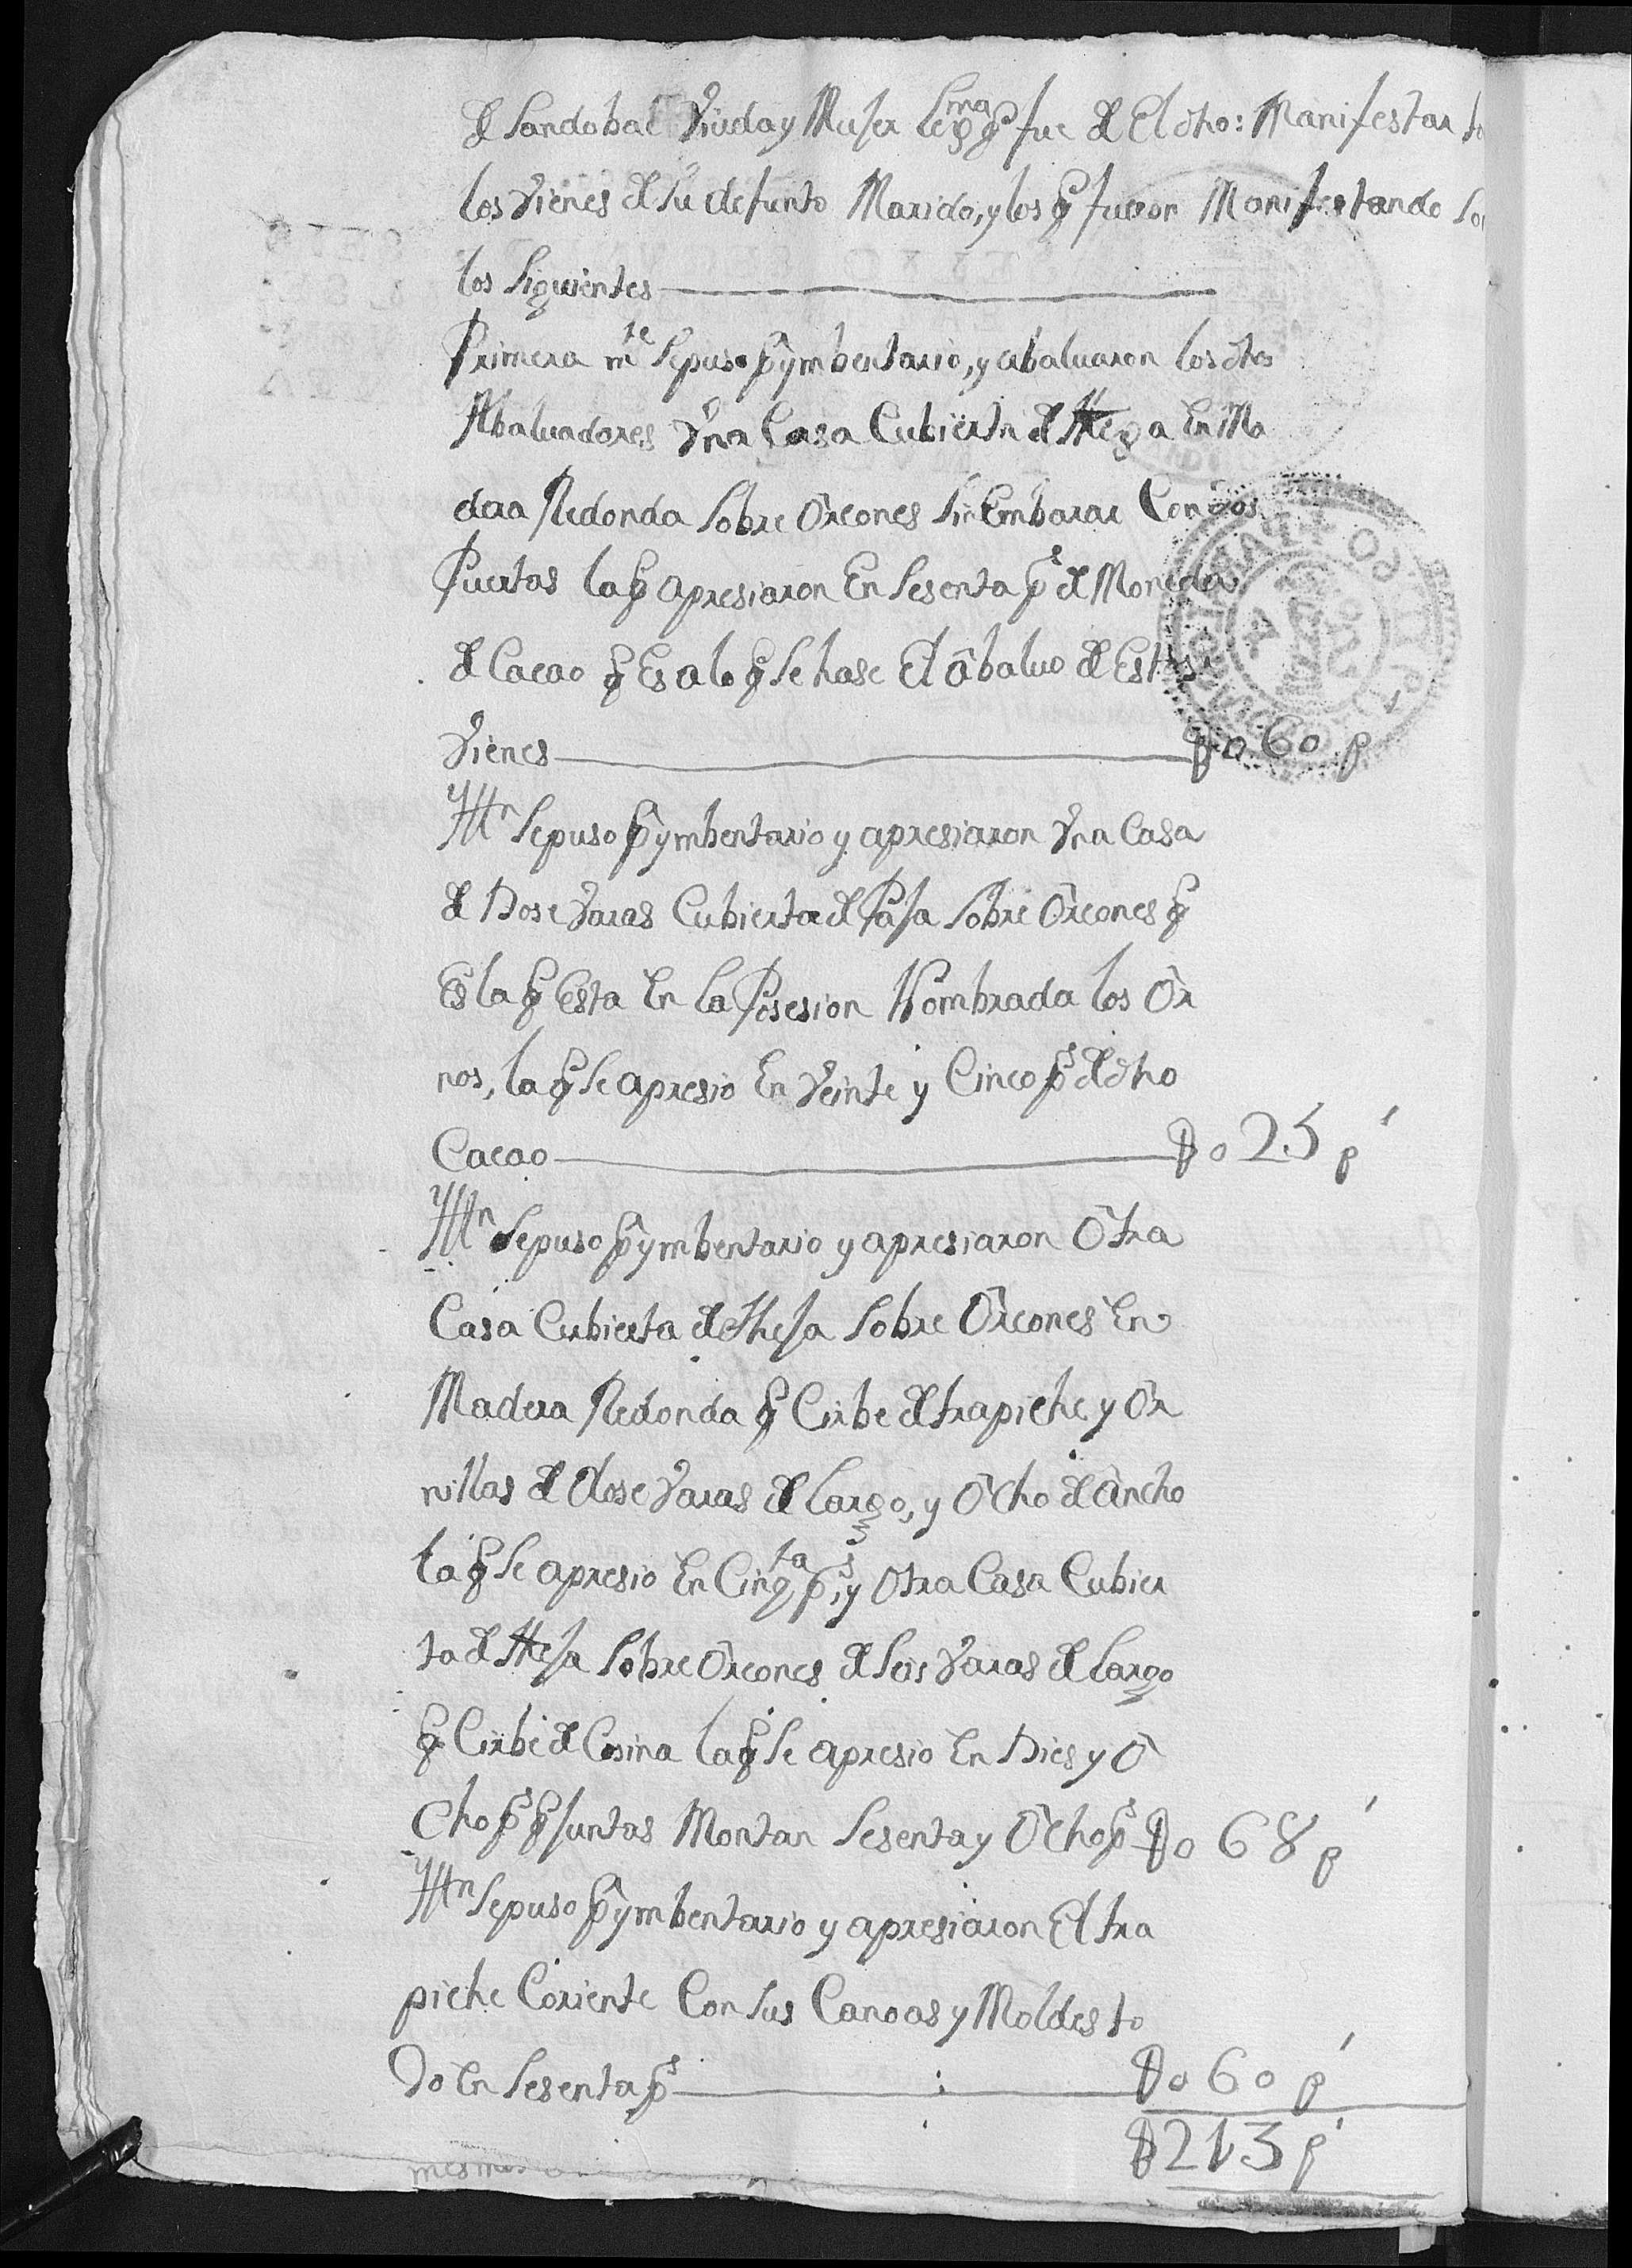 d Sandobal Viuda y Muger Legma q fue d El dho: Manifestar to
los Vienes d Su defunto Marido, y los q fueron Manifestando So
los Siguientes
Primera mte Sepuso p ymbentario, y abaluaron los dhos
Abaluadores Vna Casa Cubierta d thega En Ma
dera Redonda Sobre Orcones Sin Embarar Con dos
Puertas la q apresiaron En Sesenta ps d Moneda
d Cacao q Es a lo q Se hase El abaluo d Estos
Vienes 060 p
Yttn Sepuso p ymbentario y apresiaron Vna Casa
d Dose Varas Cubierta d Paja Sobre Orcones q
Es la q Esta En la Posesion Nombrada los Or
nos, la q Se apresio En Veinte y Cinco ps d dho
Cacao 025 p
Yttn Sepuso p ymbentario y apresiaron Otra
Casa Cubierta d theja Sobre Orcones En
Madera Redonda q Cirbe d trapiche y Or
nillas d dose Varas d Largo, y Ocho d Ancho
la q Se apresio En Cinqta ps, y Otra Casa Cubier
ta d theja Sobre Orcones d Seis Varas d Largo
q Cirbe d Cosina la q Se apresio En Dies y O
cho ps q Juntas Montan Sesenta y Ocho ps 068 p
Yttn Sepuso p ymbentario y apresiaron El tra
piche Coriente Con Sus Canoas y Moldes to
do En Sesenta ps 060 p
213 p